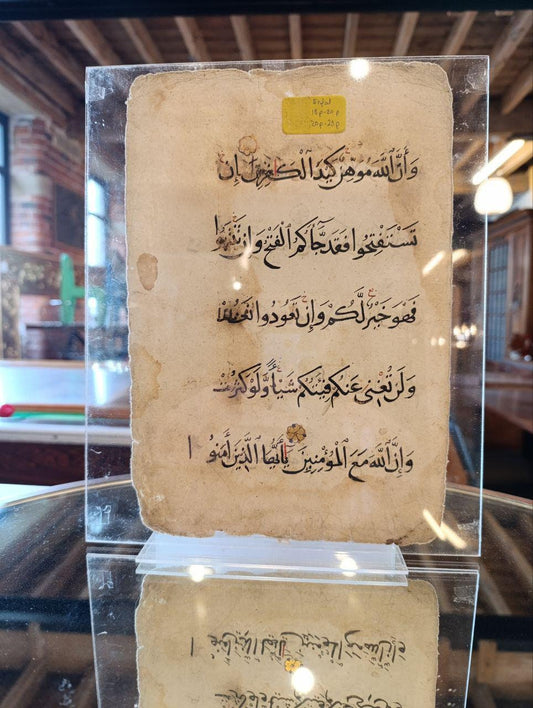 وَأَنَّ ٱللَّهَ مُوَهِّنٌ كَيْدَ الْكَفِرِينَ إِن
تَسْتَفْتِحُوا فَقَدْ جَآكُمُ الْفَتْحُ وَإِن تَنتَهُوا
فَهُوَ خَيْرٌ لَّكُمْ وَإِن تَعُودُوا نَعُدْ
وَلَن تُغْنِيَ عَنكُمْ فِئَتُكُمْ شَيْـًٔا وَّلَوْ كَثُرَتْ
وَإِنَّ ٱللَّهَ مَعَ الْمُؤْمِنِينَ يَٰٓأَيُّهَا الَّذِينَ آمَنُوا